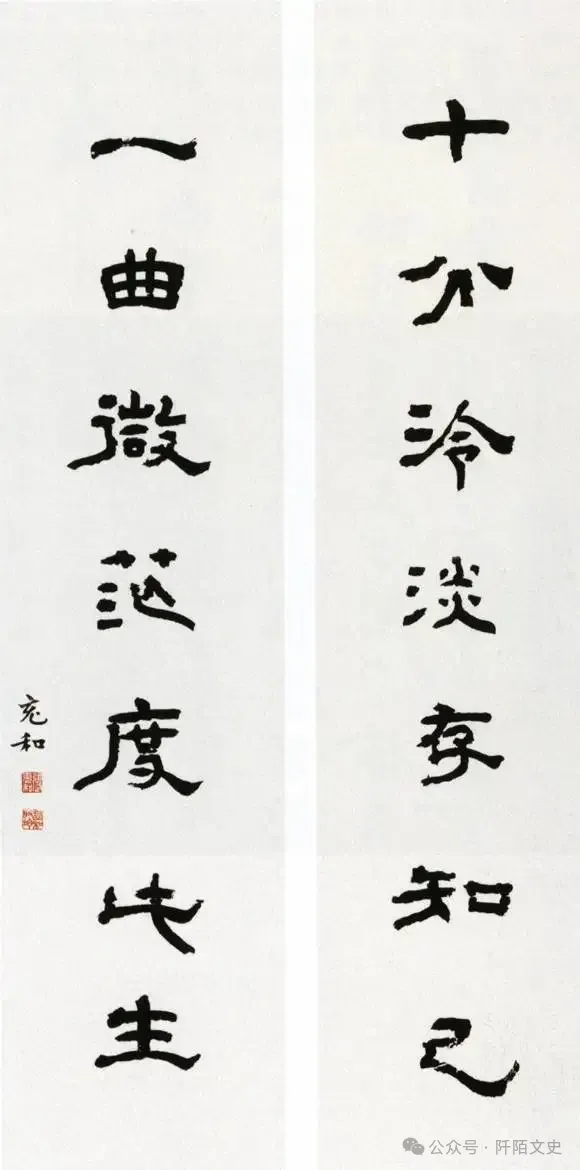 十分冷淡存知己
一曲微茫度此生
充和
公众号·阡陌文史